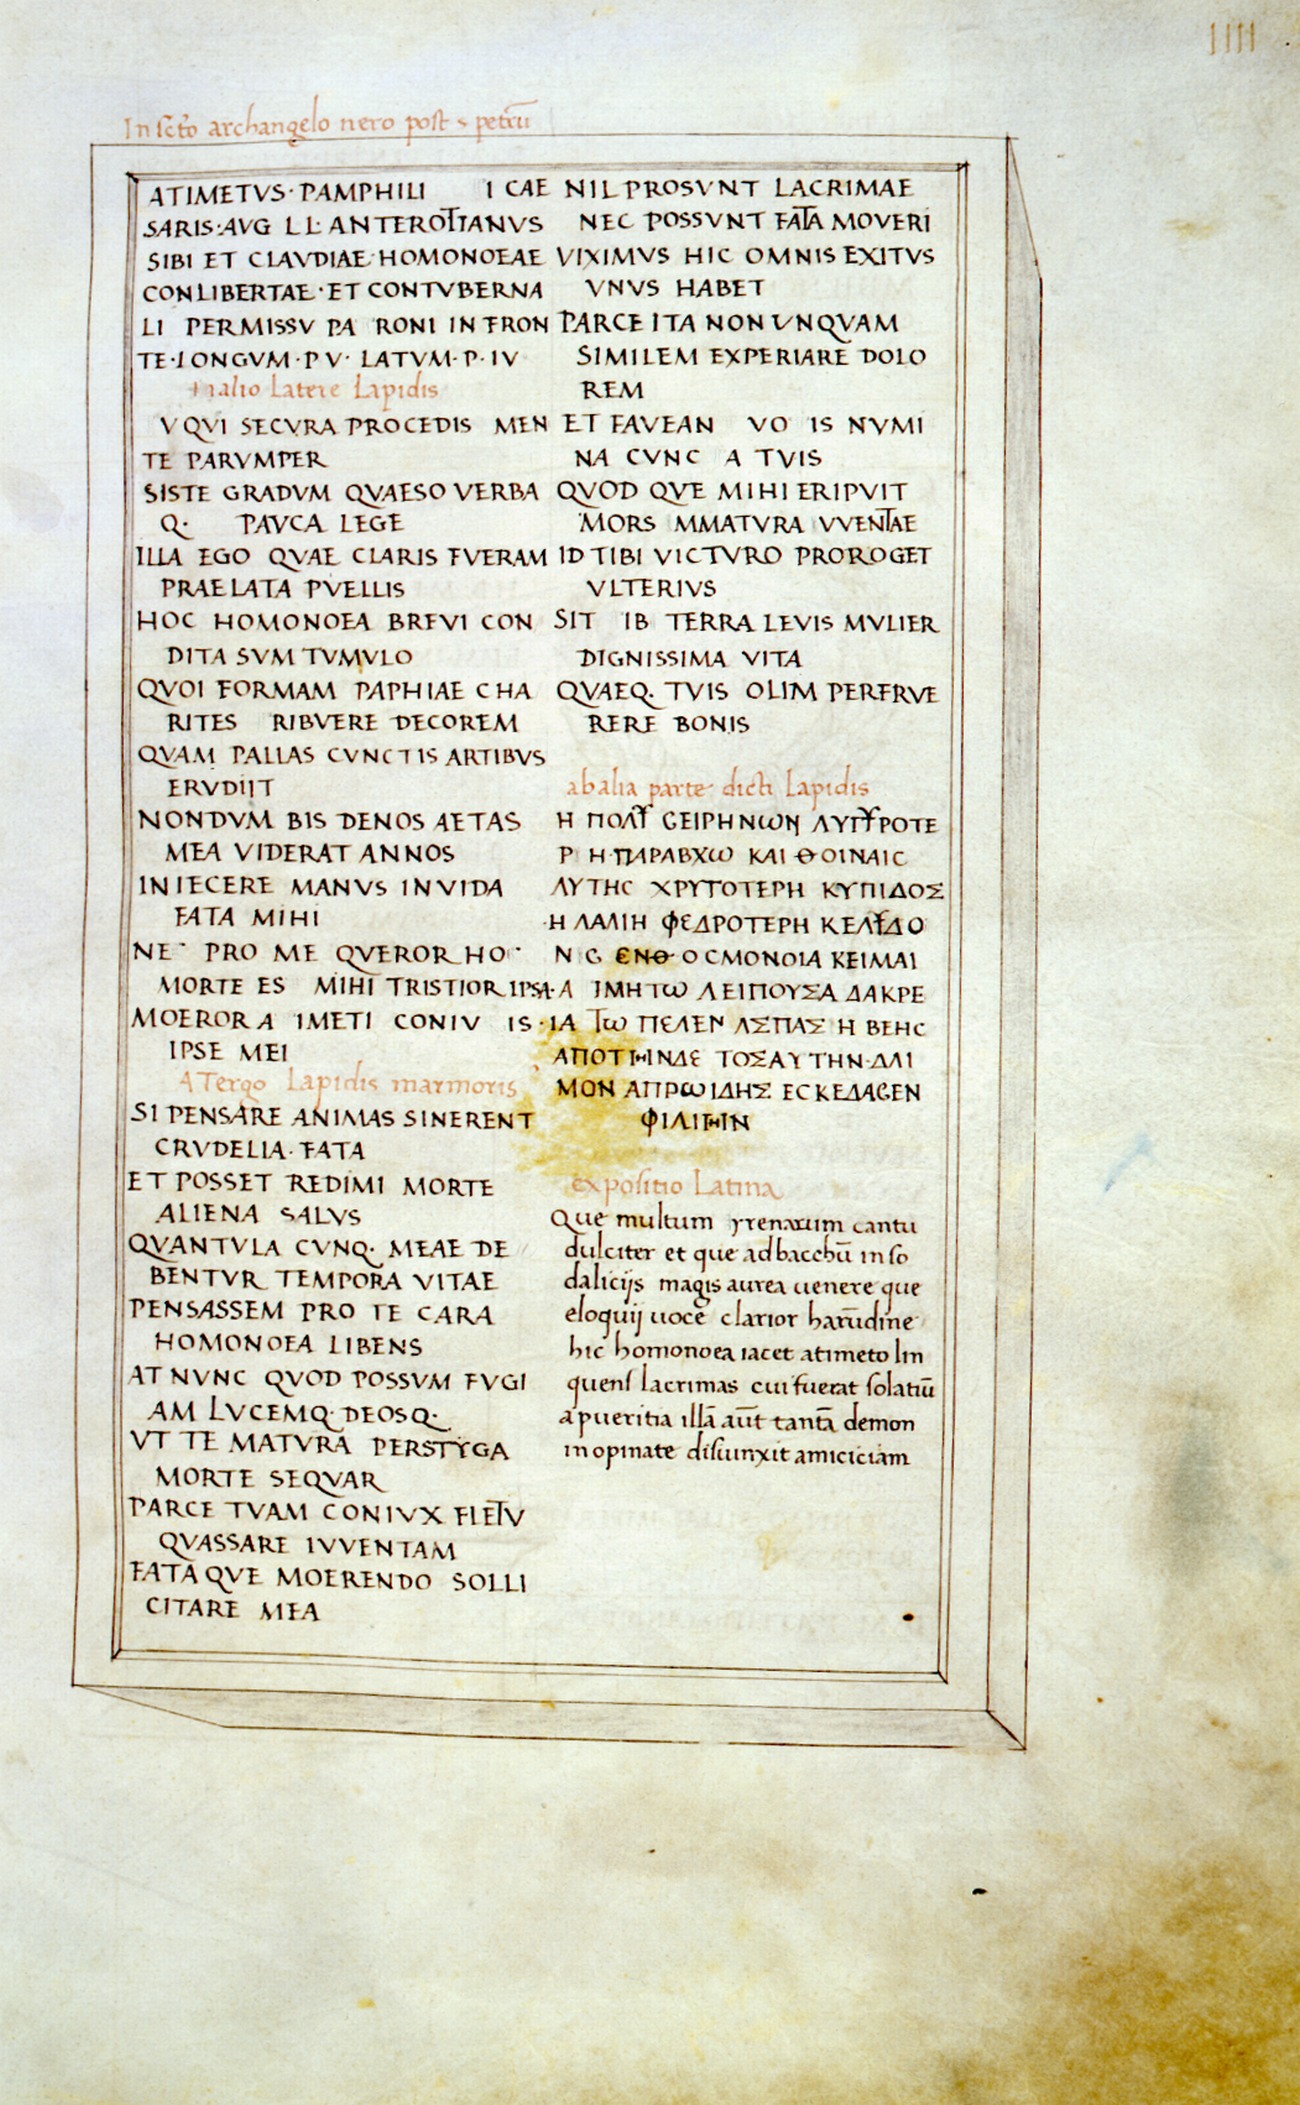 IIII
In scto archangelo nero post s petrū
ATIMETVS · PAMPHILI I CAE
SARIS · AVG L L · ANTEROTIANVS
SIBI ET CLAVDIAE HOMONOEAE
CONLIBERTAE · ET CONTVBERNA
LI PERMISSV PA RONI IN FRON
TE · LONGVM · P V · LATVM · P · IV
in alio Latere Lapidis
V QVI SECVRA PROCEDIS MEN
TE PARVMPER
SISTE GRADVM QVAESO VERBA
Q · PAVCA LEGE
ILLA EGO QVAE CLARIS FVERAM
PRAELATA PVELLIS
HOC HOMONOEA BREVI CON
DITA SVM TVMVLO
QVOI FORMAM PAPHIAE CHA
RITES RIBVERE DECOREM
QVAM PALLAS CVNCTIS ARTIBVS
ERVDIIT
NONDVM BIS DENOS AETAS
MEA VIDERAT ANNOS
INIECERE MANVS INVIDA
FATA MIHI
NE PRO ME QVEROR HO
MORTE ES MIHI TRISTIOR IPSA ·
MOEROR A IMETI CONIV IS ·
IPSE MEI
A Tergo Lapidis marmoris
SI PENSARE ANIMAS SINERENT
CRVDELIA · FATA
ET POSSET REDIMI MORTE
ALIENA SALVS
QVANTVLA CVNQ · MEAE DE
BENTVR TEMPORA VITAE
PENSASSEM PRO TE CARA
HOMONOEA LIBENS
AT NVNC QVOD POSSVM FVGI
AM LVCEMQ · DEOSQ ·
VT TE MATVRA PER STYGA
MORTE SEQVAR
PARCE TVAM CONIVX FLETV
QVASSARE IVVENTAM
FATAQVE MOERENDO SOLLI
CITARE MEA
NIL PROSVNT LACRIMAE
NEC POSSVNT FATA MOVERI
VIXIMVS HIC OMNIS EXITVS
VNVS HABET
PARCE ITA NON VNQVAM
SIMILEM EXPERIARE DOLO
REM
ET FAVEAN VO IS NVMI
NA CVNC A TVIS
QVOD QVE MIHI ERIPVIT
MORS MMATVRA VVENTAE
ID TIBI VICTVRO PROROGET
VLTERIVS
SIT IB TERRA LEVIS MVLIER
DIGNISSIMA VITA
QVAEQ · TVIS OLIM PERFRVE
RERE BONIS
ab alia parte dicti Lapidis
Η ΠΟΛΥ CΕΙΡΗΝΩΝ ΛΥΓΥΡΟΤΕ
Ρ Η · ΠΑΡΑΒΧΩ ΚΑΙ ΘΟΙΝΑΙC
ΛΥΤΗC ΧΡΥΓΟΤΕΡΗ ΚΥΠΙΔΟΣ
Η ΛΑΛΙΗ ΦΕΔΡΟΤΕΡΗ ΚΕΛΥΔΟ
Ν G ΕΝΘ ΟCΜΟΝΟΙΑ ΚΕΙΜΑΙ
Α ΙΜΗΤΩ ΛΕΙΠΟΥΣΑ ΔΑΚΡΕ
ΙΑ ΤΩ ΠΕΛΕΝ ΑΣΠΑΣ Η ΒΕΗC
ΑΠΟΤ ΗΙΝΔΕ ΤΟΣΑΥΤΗΝ · ΔΑΙ
ΜΟΝ ΑΠΡΩΙΔΗΣ ΕCΚΕΔΑCΕΝ
ΦΙΛΙΗΙΝ
expositio Latina
Que multum yrenarum cantu
dulciter et que ad bacchū in so
dalicijs magis aurea uenere que
eloquij uoce clarior harūdine
hic homonoea iacet atimeto lin
quens lacrimas cui fuerat solatiū
a pueritia illā aūt tantā demon
in opinate disiunxit amiciciam